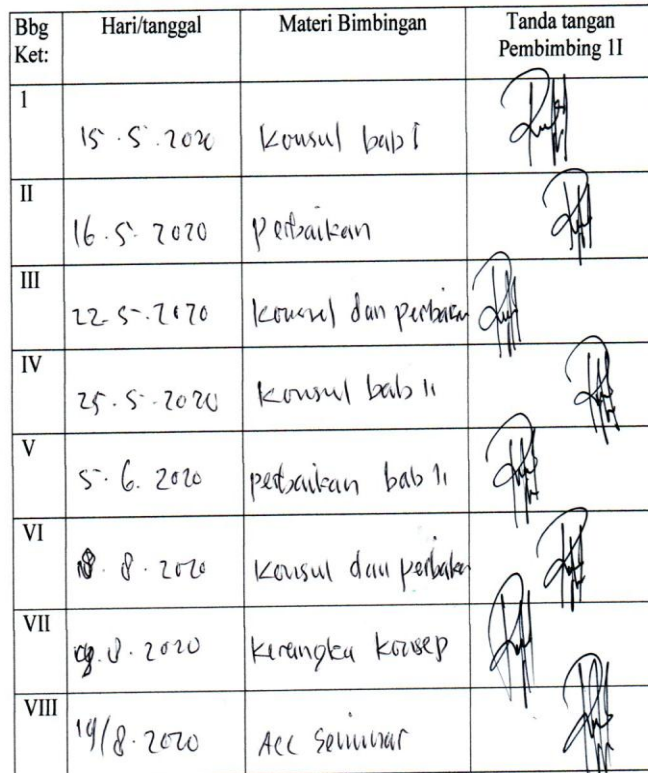 Bbg Hari/tanggal Materi Bimbingan Tanda tangan
Ket: Pembimbing 1I
1
15 . 5 . 2020 Konsul bab I
II
16 . 5 . 2020 perbaikan
III
22 - 5 - 2020 Konsul dan perbaikan
IV
25 . 5 . 2020 Konsul bab II
V
5 . 6 . 2020 perbaikan bab II
VI
8 . 2020 Konsul dan perbaikan
VII
8 . 2020 Kerangka Konsep
VIII
19/8 . 2020 Acc Seminar